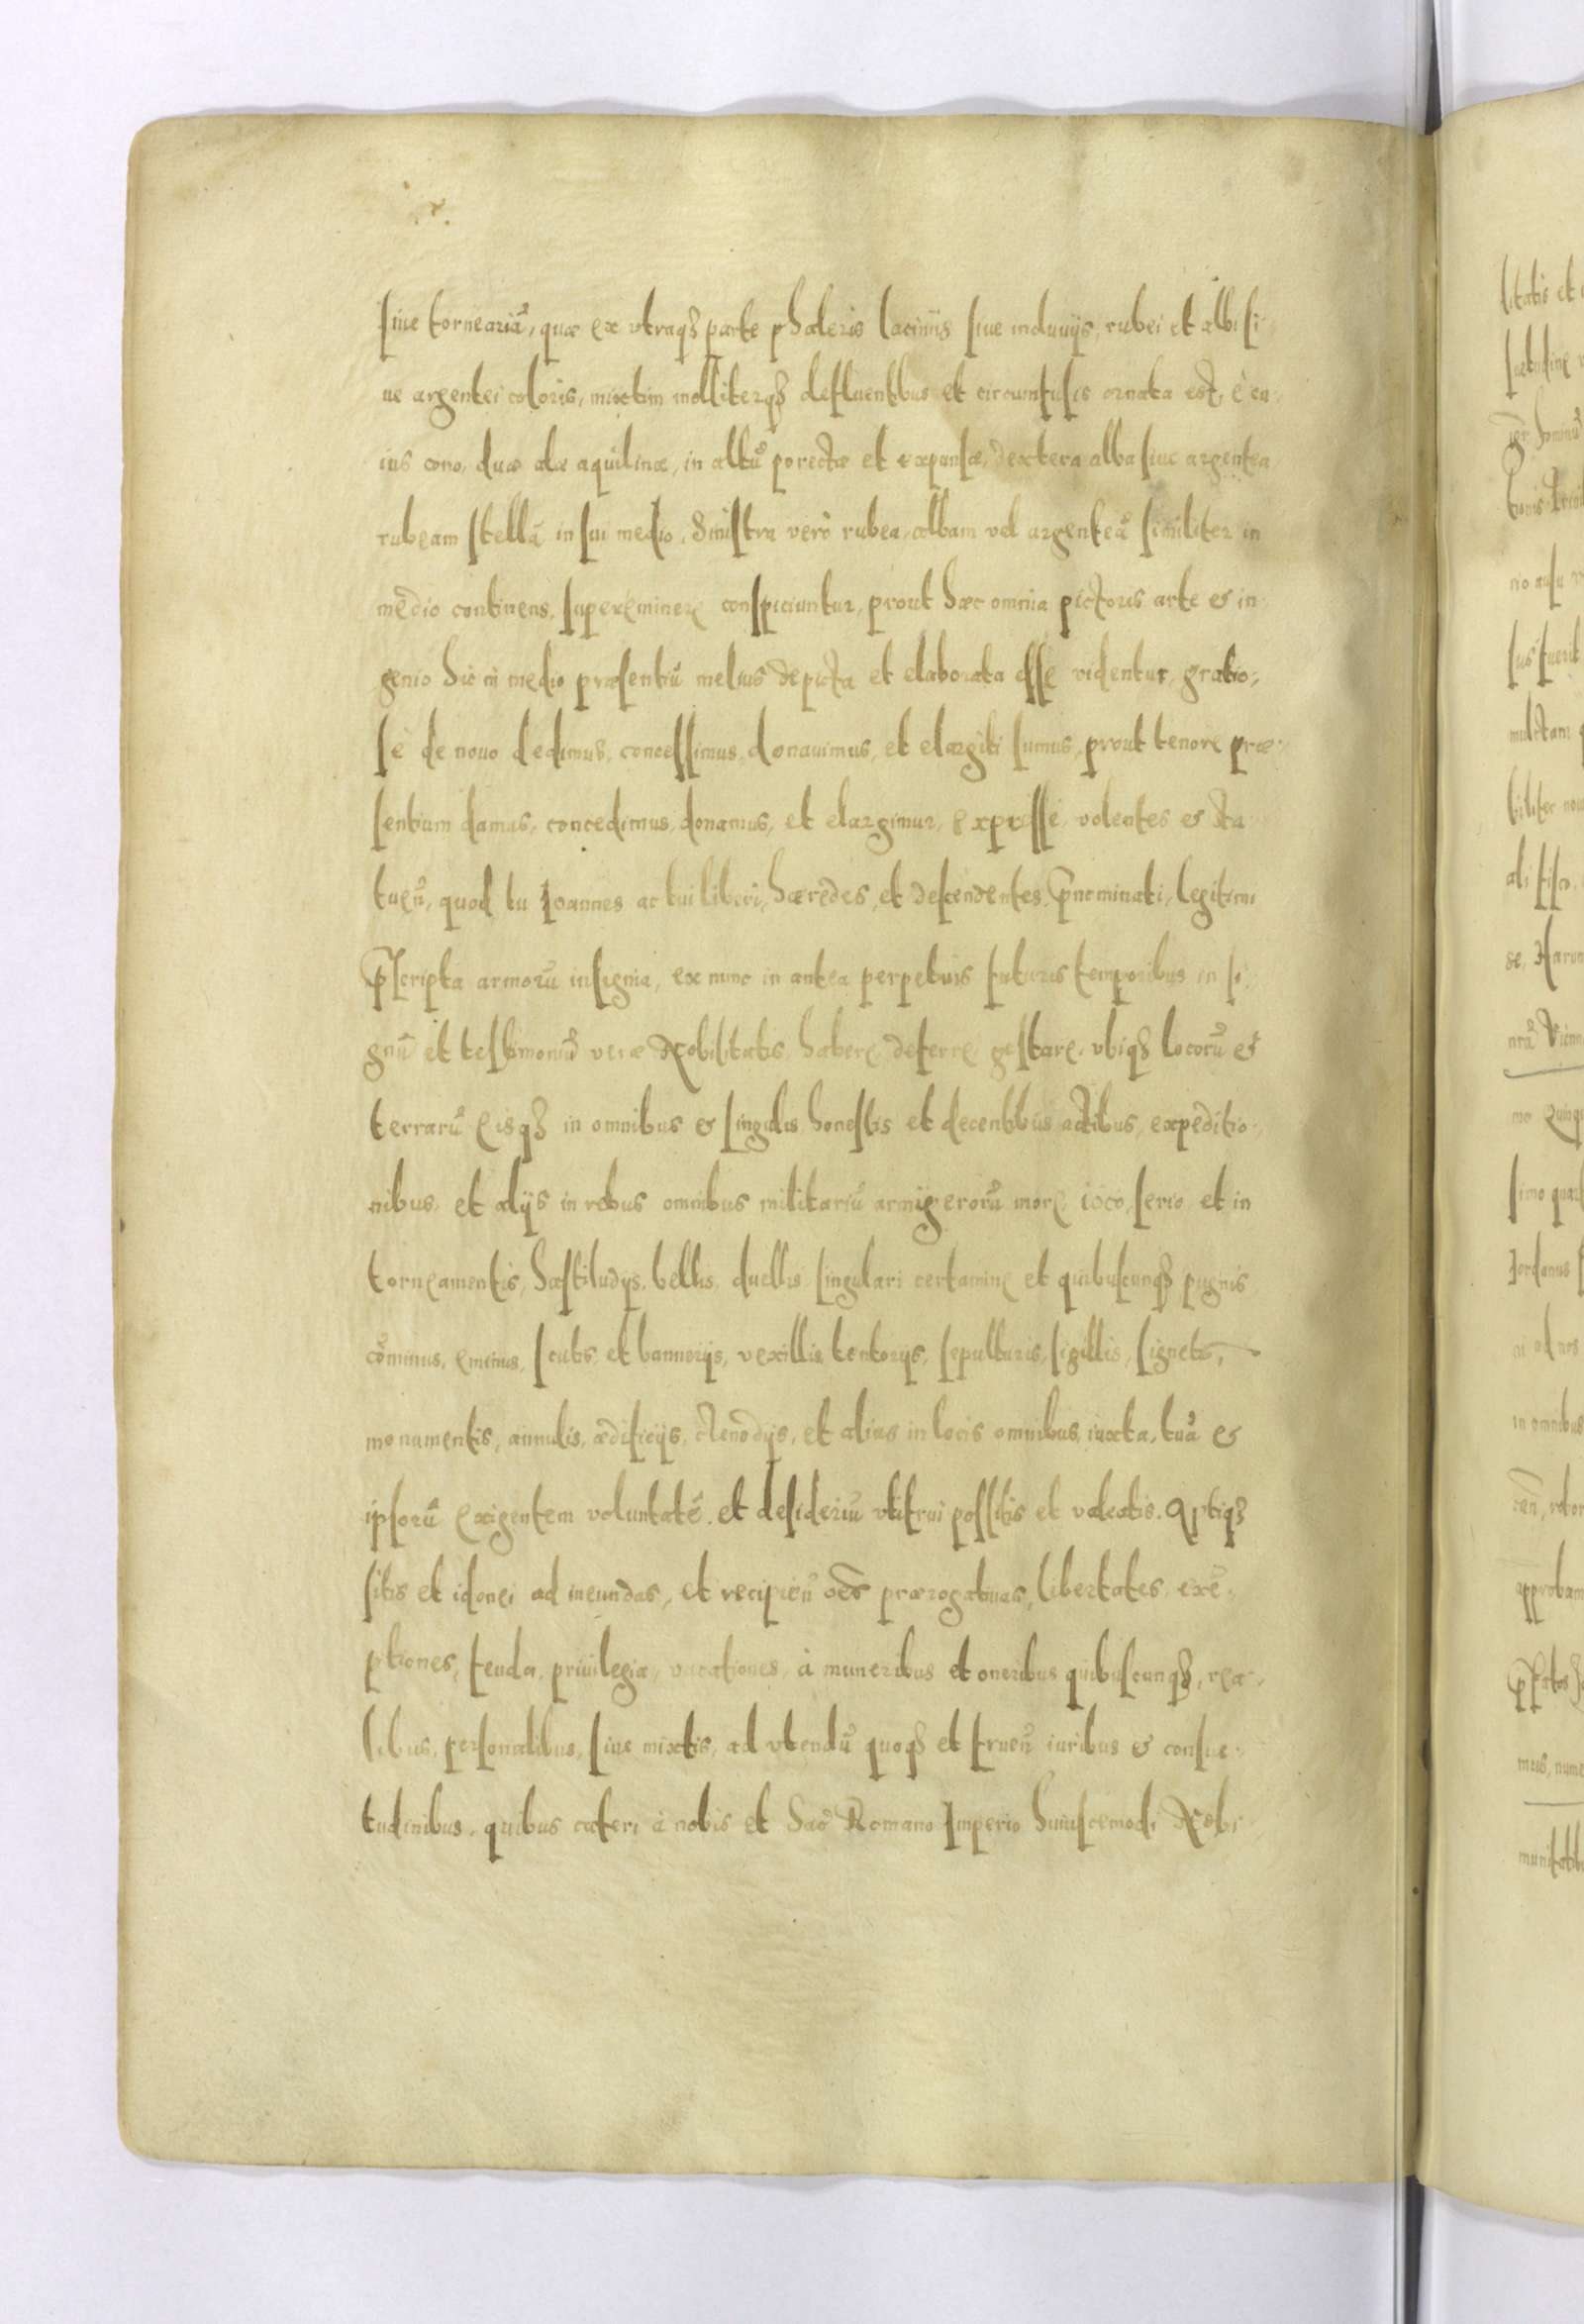 siue torneariũ, quæ ex vtraqꝫ parte phaleris lacinijs siue induuijs, rubei et albi si
ue argentei coloris, mixtim molliterqꝫ defluentibus et circumfusis ornata est, è cu
ius cono, duæ alæ aquilinæ, in altũ porectæ et expansæ, dextera alba siue argentea
rubeam stellã in sui medio, Sinistra verò rubea, albam vel argenteã similiter in
medio continens, supereminere conspiciuntur, prout hæc omnia pictoris arte & in
genio hic in medio præsentiũ melius depicta et elaborata esse videntur, gratio,
sè de nouo dedimus, concessimus, donauimus, et elargiti sumus, prout tenore præ
sentium damus, concedimus, donamus, et elargimur, expressè volentes & sta
tueñ, quod tu Joannes ac tui liberi, hæredes, et descendentes, p̃nominati, legitimi
p̃scripta armorũ insignia, ex nunc in antea perpetuis futuris temporibus in si
gnũ et testimoniũ veræ Nobilitatis habere, deferre, gestare, vbiqꝫ locorũ &
terrarũ eisqꝫ in omnibus & singulis honestis et decentibus actibus, expeditio
nibus, et alijs in rebus omnibus militariũ armigerorũ more, ioco, serio et in
torneamentis, hastiludijs, bellis, duellis, singulari certamine et quibuscunqꝫ pugnis
cõminus, eminus, scutis et bannerijs, vexillis, tentorijs, sepulturis, sigillis, signetis,
monumentis, annulis, ædificijs, clenodijs, et alias in locis omnibus, iuxta, tuã &
ipsorũ exigentem voluntatẽ, et desideriũ vti frui possitis et valeatis. Aptiqꝫ
sitis et idonei ad ineundas, et recipieñ oẽs prærogatiuas, libertates, exẽ
ptiones, feuda, priuilegia, vacationes, à muneribus et oneribus quibuscunqꝫ, rea
libus, personalibus, siue mixtis, ad vtendũ quoqꝫ et frueñ iuribus & consue
tudinibus, quibus cæteri à nobis et Sacro Romano Imperio huiuscemodi Nobi